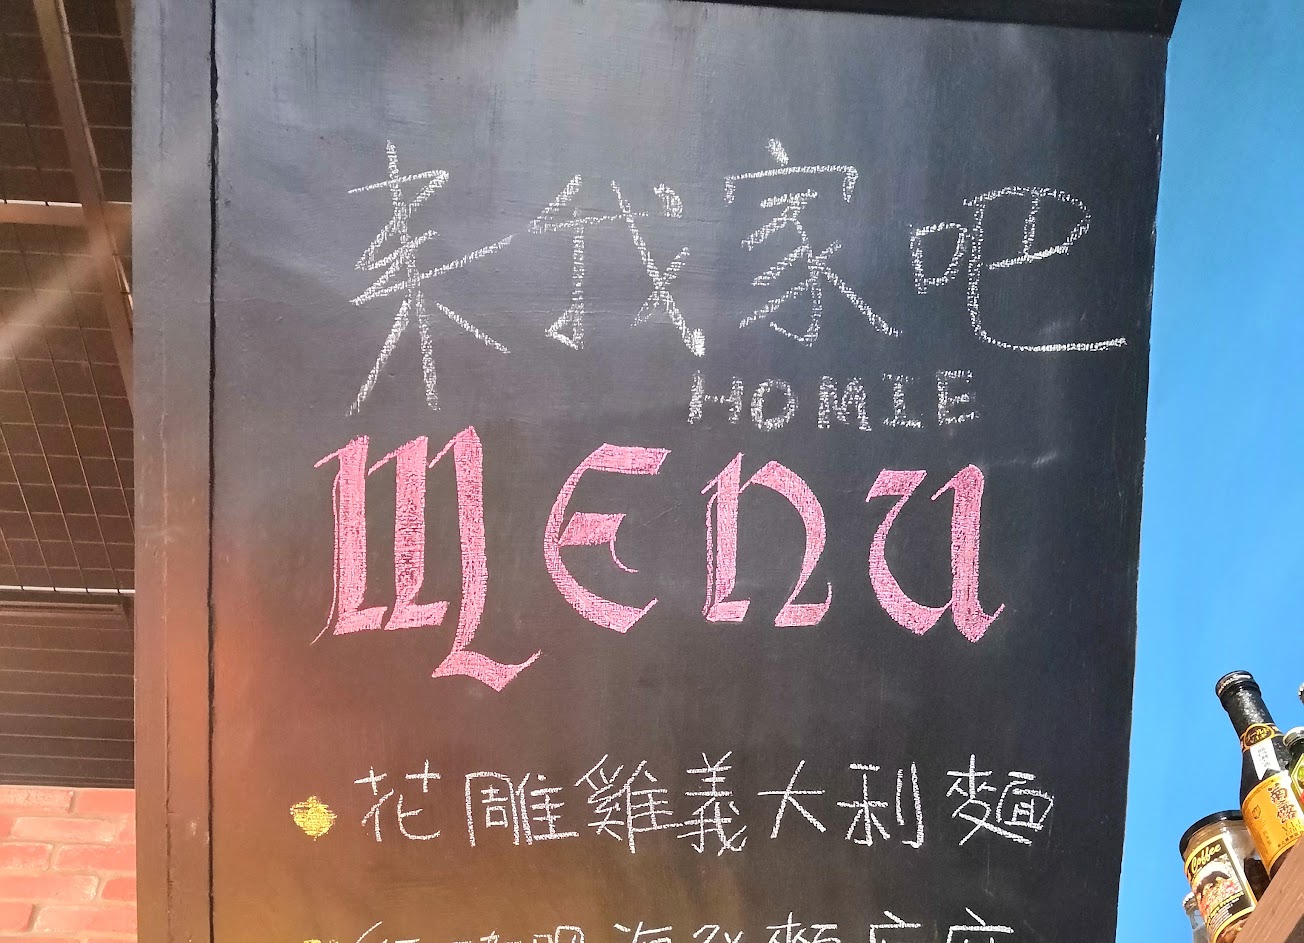 来我家吧
HOMIE
MENU
花雕雞義大利麵
Coffee